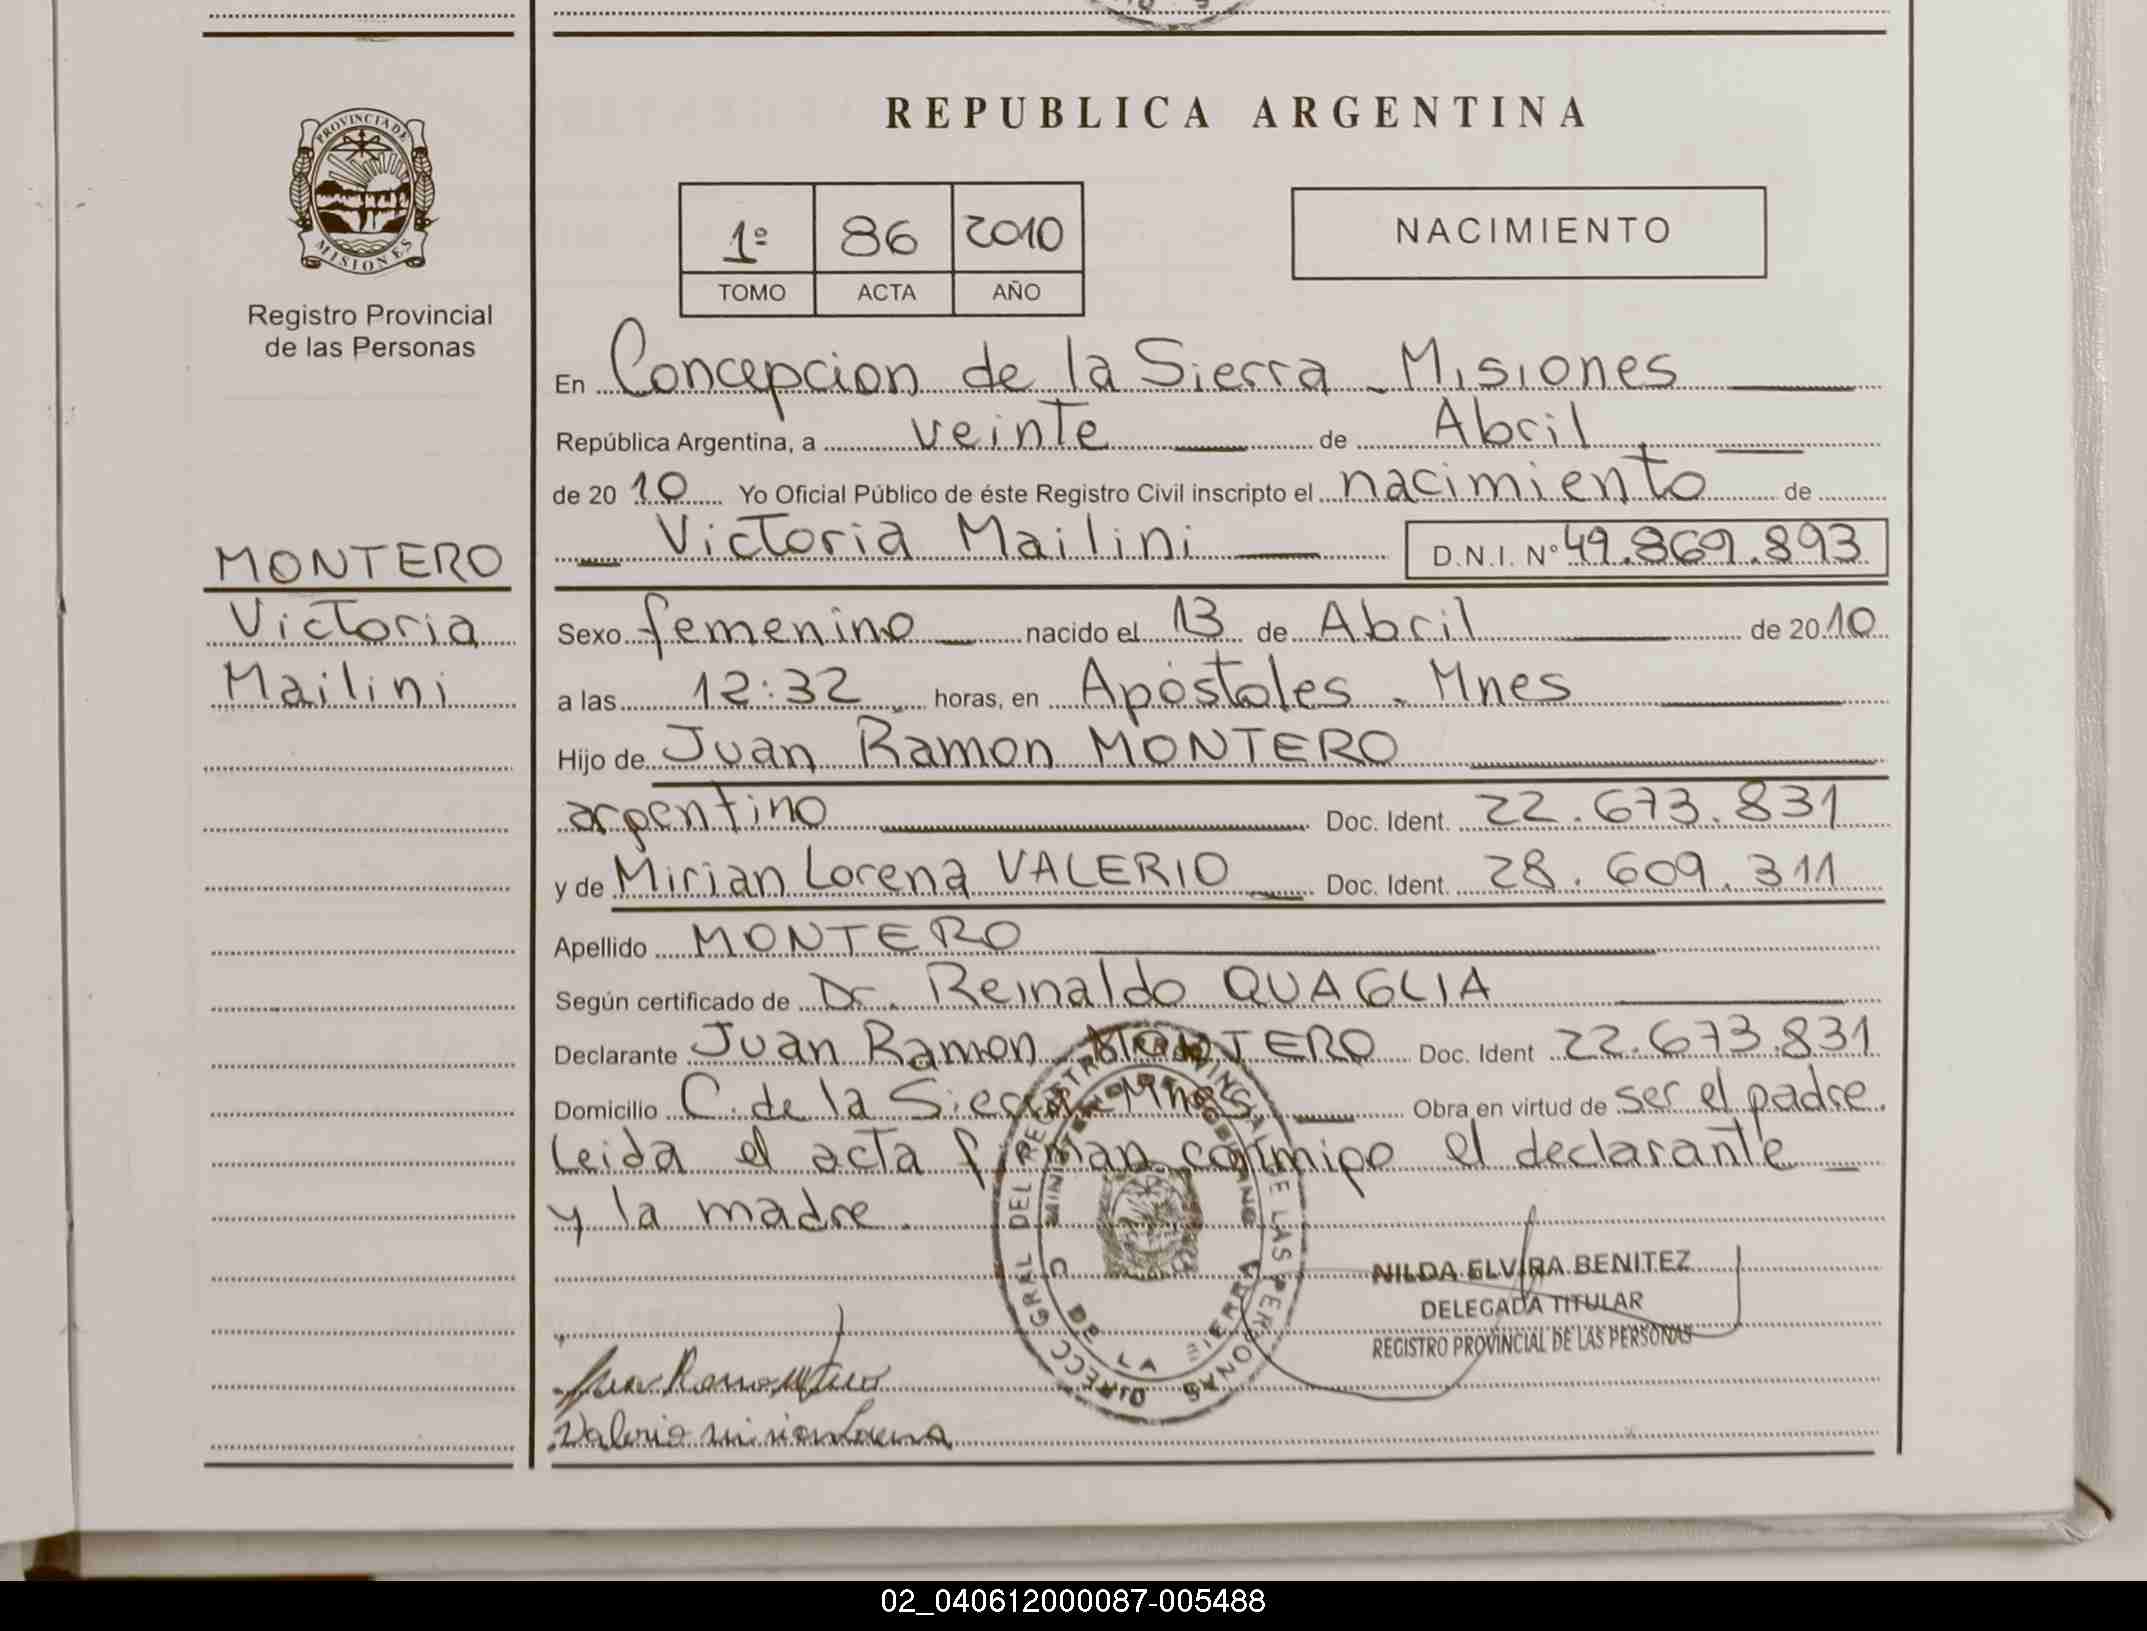 REPUBLICA ARGENTINA
PROVINCIA DE
MISIONES
Registro Provincial
de las Personas
1º 86 2010
TOMO ACTA AÑO
NACIMIENTO
En Concepcion de la Sierra - Misiones
República Argentina, a veinte de Abril
de 20 10 Yo Oficial Público de éste Registro Civil inscripto el nacimiento de
Victoria Mailini D.N.I. Nº 49.869.893
MONTERO
Victoria
Mailini
Sexo femenino nacido el 13 de Abril de 20 10
a las 12:32 horas, en Apóstoles - Mnes
Hijo de Juan Ramon MONTERO
argentino Doc. Ident. 22.673.831
y de Mirian Lorena VALERIO Doc. Ident. 28.609.311
Apellido MONTERO
Según certificado de Dr. Reinaldo QUAGLIA
Declarante Juan Ramon MONTERO Doc. Ident 22.673.831
Domicilio C. de la Sierra - Mnes Obra en virtud de ser el padre.
Leida el acta firman conmigo el declarante
y la madre.
DIRECC GRAL DEL REGISTRO PROVINCIAL DE LAS PERSONAS
MINISTERIO DE GOBIERNO
C DE LA SIERRA
NILDA ELVIRA BENITEZ
DELEGADA TITULAR
REGISTRO PROVINCIAL DE LAS PERSONAS
Juan Ramon Montero
Valerio Mirian Lorena
02_040612000087-005488